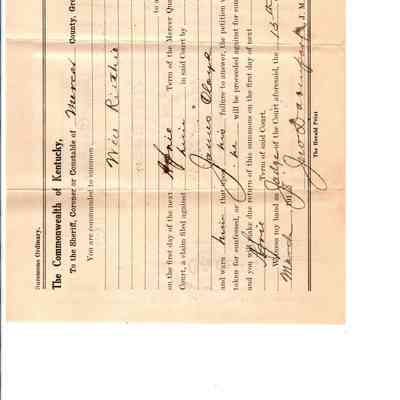 Summons Ordinary.
The Commonwealth of Kentucky,
To the Sheriff, Coroner or Constable of Mercer County, Gre
You are commanded to summon
Will
to a
on the first day of the next April Term of the Mercer Qua
Court, a claim filed against him in said Court by
James
and warn him that upon his failure to answer, the petition w
taken for confessed, or he will be proceeded against for con
and you will make due return of this summons on the first day of next
April Term of said Court.
Witness my hand as Judge of the Court aforesaid, the 13th
March 191
J. M.
The Herald Print